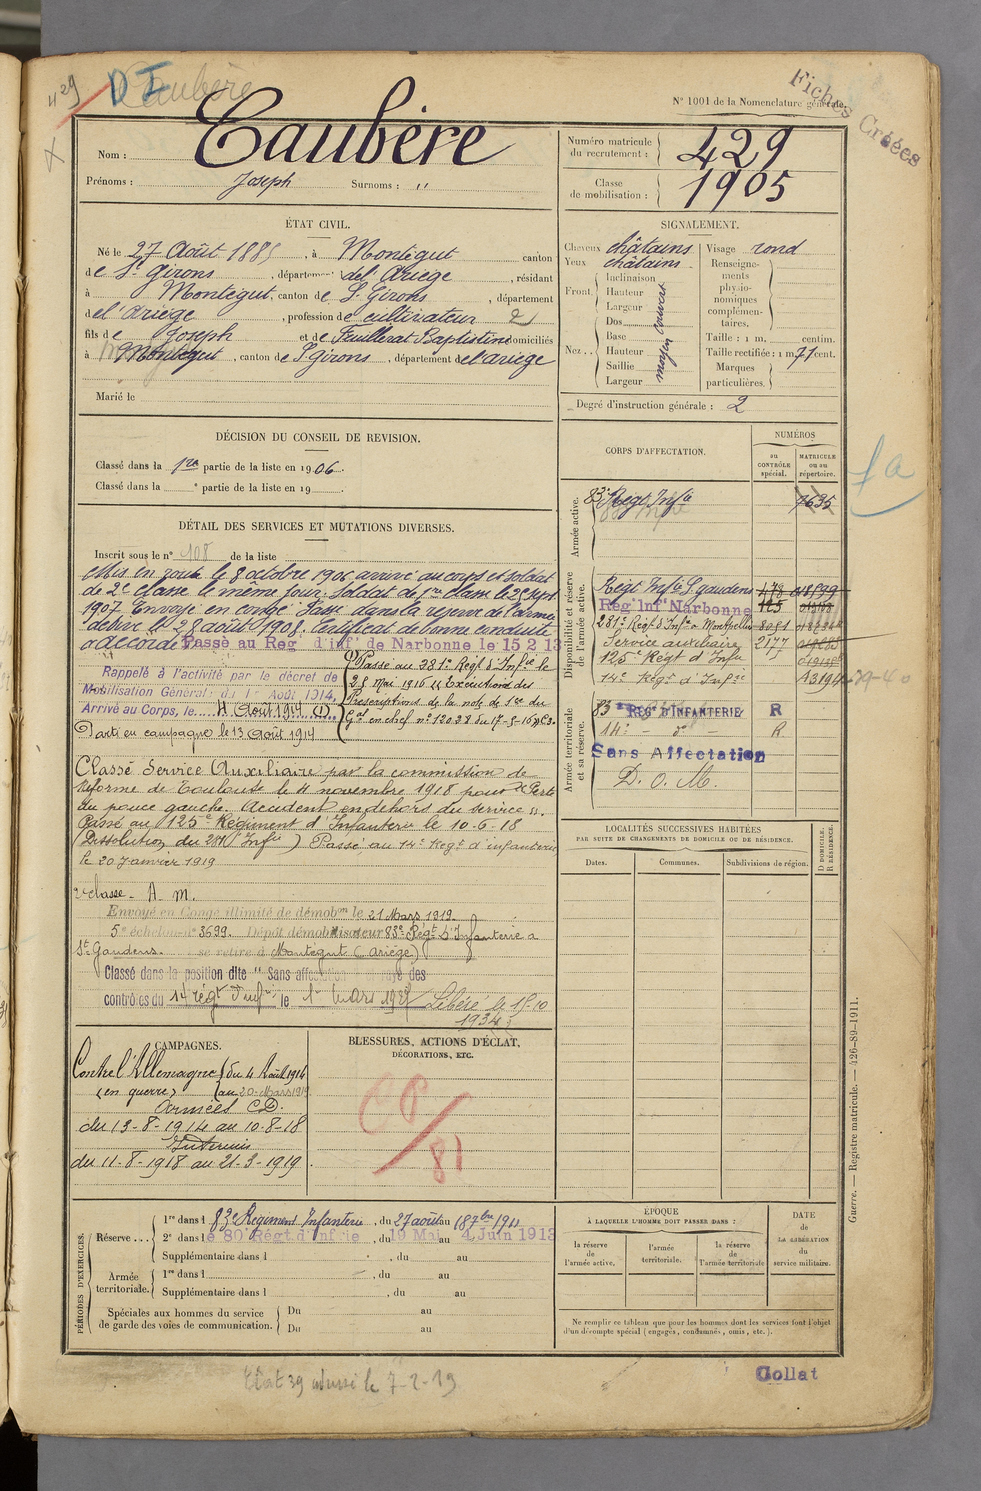 429
D I
Caubère
Fiches Créées
N° 1001 de la Nomenclature générale.
Nom : Caubère
Prénoms : Joseph Surnoms : "
Numéro matricule du recrutement : 429
Classe de mobilisation : 1905
ÉTAT CIVIL.
Né le 27 Août 1885, à Montégut canton
de St Girons, département de l'Ariège, résidant
à Montégut, canton de St Girons, département
de l'Ariège, profession de cultivateur 2
fils de Joseph et de Feuillerat Baptistine domiciliés
à Montégut, canton de St Girons, département de l'Ariège
Marié le
SIGNALEMENT.
Cheveux châtains
Yeux châtains
Front. Inclinaison
Hauteur
Largeur
Nez.. Dos
Base
Hauteur
Saillie
Largeur
moyen
Visage rond
Renseignements physionomiques complémentaires.
Taille : 1 m, centim.
Taille rectifiée : 1 m, 71 cent.
Marques particulières.
Degré d'instruction générale : 2
DÉCISION DU CONSEIL DE REVISION.
Classé dans la 1re partie de la liste en 1906.
Classé dans la ° partie de la liste en 19
CORPS D'AFFECTATION.
NUMÉROS
au CONTRÔLE spécial.
MATRICULE ou au répertoire.
fa
Armée active.
83e Régt Infie 7635
Disponibilité et réserve de l'armée active.
Régt Infie St Gaudens 478 01899
Rég. Inf. Narbonne 125
281e Régt d'Infie à Montpellier 8051
Service auxiliaire 2177
125e Régt d'Infie
14e Régt d'Infie A3194
Armée territoriale et sa réserve.
83e RÉGt D'INFANTERIE R
14e - d° - R
Sans Affectation
D. O. M.
DÉTAIL DES SERVICES ET MUTATIONS DIVERSES.
Inscrit sous le n° 108 de la liste
Mis en route le 8 octobre 1906 arrivé au corps et soldat
de 2e classe le même jour, Soldat de 1re classe le 25 sept
1907 Envoyé en congé. Passé dans la réserve de l'armée
active le 28 août 1908. Certificat de bonne conduite
accordé Passé au Rég d'inf. de Narbonne le 15 2 13
Rappelé à l'activité par le décret de
Mobilisation Générale du 1er Août 1914,
Arrivé au Corps, le 4 Août 1914 (1)
Parti en campagne le 13 Août 1914
(1) Passé au 281e Régt d'Infie le
28 Mai 1916 (Exécution des
Prescriptions de la note de
Gal en chef n° 12028 du 17-5-16)
Classé Service Auxiliaire par la commission de
réforme de Toulouse le 4 novembre 1918 pour "Perte
du pouce gauche. Accident en dehors du service".
Passé au 125e Régiment d'Infanterie le 10-6-18
(Dissolution du 281e Infie) Passé au 14e Régt d'infanterie
le 20 Janvier 1919
2e classe - A. M.
Envoyé en Congé illimité de démobon le 21 Mars 1919.
5e échelon n° 3699. Dépôt démobilisateur 83e Régt d'Infanterie à
St Gaudens. se retire à Montégut (Ariège)
Classé dans la position dite "Sans affectation rayé des
contrôles du 14 régt d'infie le 1er mars 1927 Libéré le 15-10
1934
LOCALITÉS SUCCESSIVES HABITÉES
PAR SUITE DE CHANGEMENTS DE DOMICILE OU DE RÉSIDENCE.
Dates. Communes. Subdivisions de région. D DOMICILE. R RÉSIDENCE.
CAMPAGNES.
Contre l'Allemagne du 4 Août 1914
(en guerre) au 20 Mars 1919
Armées CD.
du 13-8-1914 au 10-8-18
Intérieur
du 11-8-1918 au 21-3-1919.
BLESSURES, ACTIONS D'ÉCLAT,
DÉCORATIONS, ETC.
PÉRIODES D'EXERCICES.
Réserve... 1re dans l 83e Régiment Infanterie, du 27 août au 18 7bre 1911
2e dans le 80 Régt. d'Infrie, du 19 Mai au 4 Juin 1913
Supplémentaire dans l , du au
Armée territoriale. 1re dans l , du au
Supplémentaire dans l , du au
Spéciales aux hommes du service de garde des voies de communication. Du au
Du au
ÉPOQUE
À LAQUELLE L'HOMME DOIT PASSER DANS :
la réserve de l'armée active.
l'armée territoriale.
la réserve de l'armée territoriale
DATE de LA LIBÉRATION du service militaire.
Ne remplir ce tableau que pour les hommes dont les services font l'objet
d'un décompte spécial (engagés, condamnés, omis, etc.).
Guerre. — Registre matricule. — 426-89-1911.
Collat